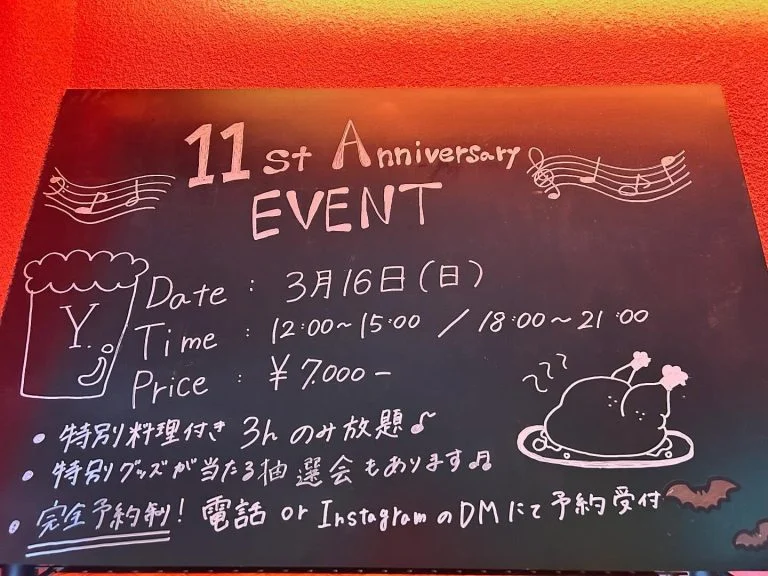 11st Anniversary
EVENT
Y.
Date : 3月16日(日)
Time : 12:00~15:00 / 18:00~21:00
Price : ¥7.000-
• 特別料理付き 3h のみ放題♪
• 特別グッズが当たる抽選会もあります♬
• 完全予約制! 電話 or InstagramのDMにて予約受付